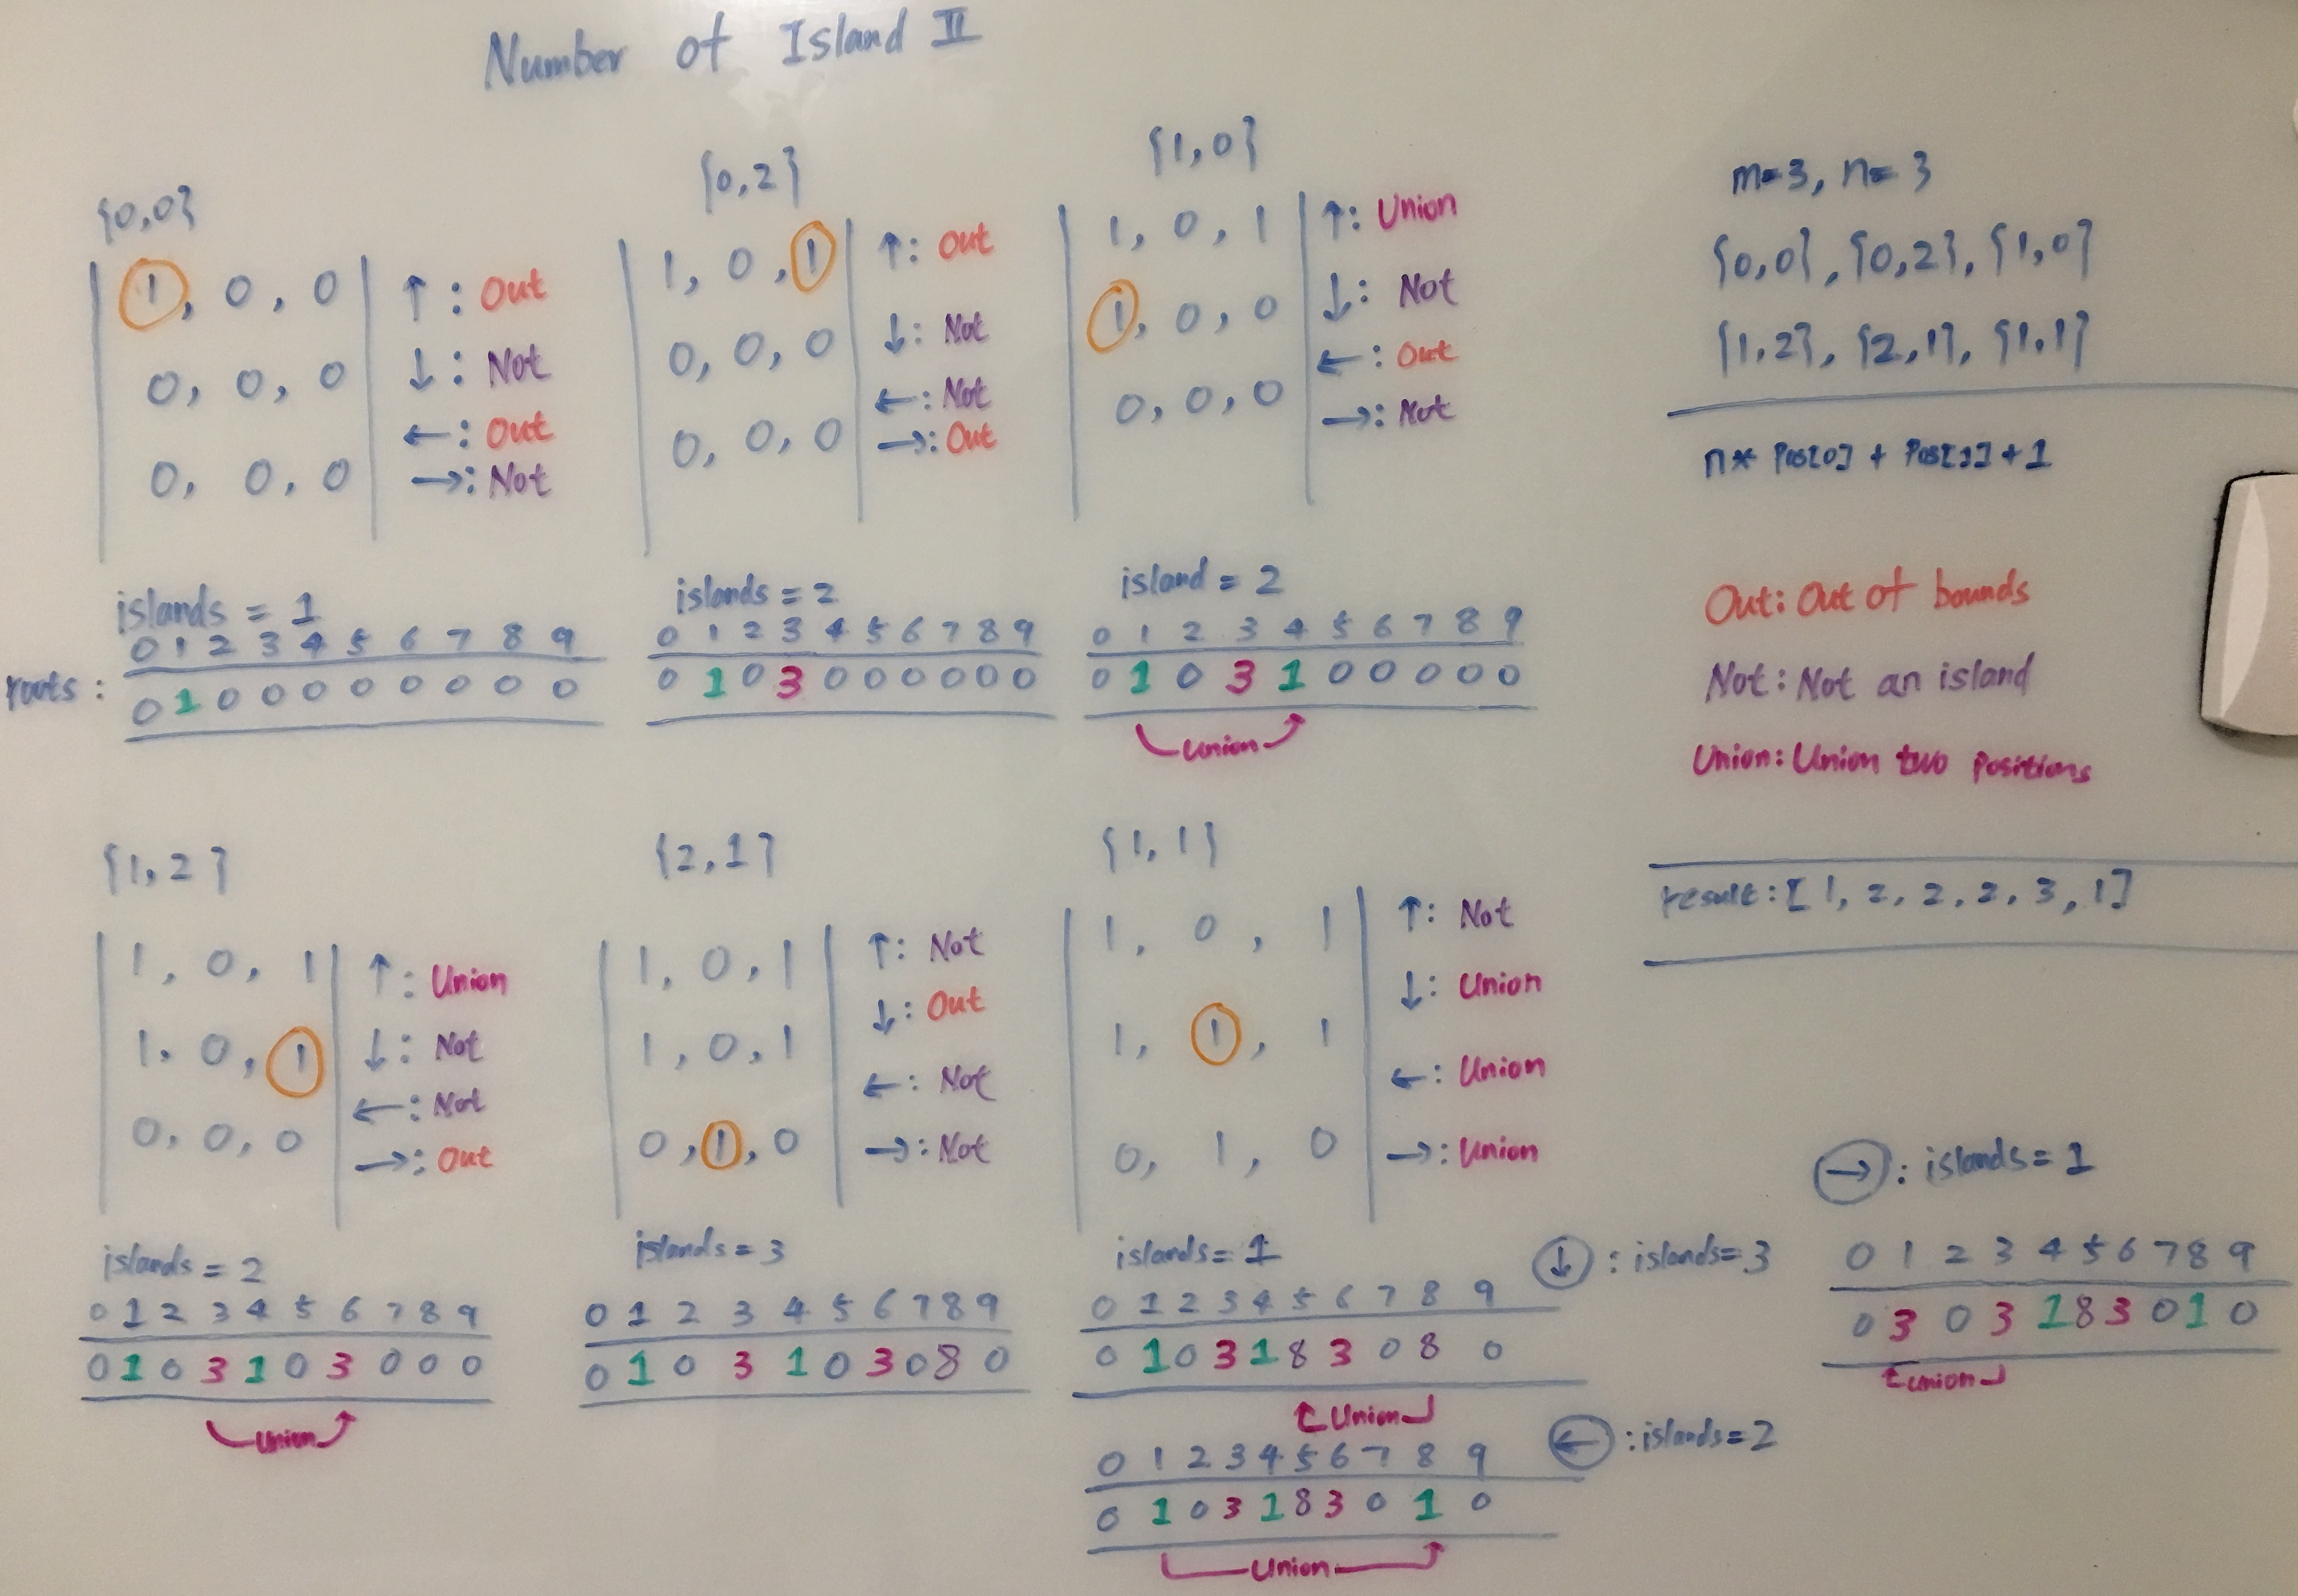 Number of Island II
{0,0}
1, 0, 0
0, 0, 0
0, 0, 0
↑: Out
↓: Not
←: Out
→: Not
islands = 1
0 1 2 3 4 5 6 7 8 9
roots: 0 1 0 0 0 0 0 0 0 0
{0,2}
1, 0, 1
0, 0, 0
0, 0, 0
↑: Out
↓: Not
←: Not
→: Out
islands = 2
0 1 2 3 4 5 6 7 8 9
0 1 0 3 0 0 0 0 0 0
{1,0}
1, 0, 1
1, 0, 0
0, 0, 0
↑: Union
↓: Not
←: Out
→: Not
island = 2
0 1 2 3 4 5 6 7 8 9
0 1 0 3 1 0 0 0 0 0
Union
m=3, n=3
{0,0}, {0,2}, {1,0}
{1,2}, {2,1}, {1,1}
n* Pos[0] + Pos[1] + 1
Out: Out of bounds
Not: Not an island
Union: Union two positions
result: [1, 2, 2, 2, 3, 1]
{1,2}
1, 0, 1
1, 0, 1
0, 0, 0
↑: Union
↓: Not
←: Not
→: Out
islands = 2
0 1 2 3 4 5 6 7 8 9
0 1 0 3 1 0 3 0 0 0
Union
{2,1}
1, 0, 1
1, 0, 1
0, 1, 0
↑: Not
↓: Out
←: Not
→: Not
islands = 3
0 1 2 3 4 5 6 7 8 9
0 1 0 3 1 0 3 0 8 0
{1,1}
1, 0, 1
1, 1, 1
0, 1, 0
↑: Not
↓: Union
←: Union
→: Union
islands = 1
↓: islands=3
0 1 2 3 4 5 6 7 8 9
0 1 0 3 1 8 3 0 8 0
Union
←: islands=2
0 1 2 3 4 5 6 7 8 9
0 1 0 3 1 8 3 0 1 0
Union
→: islands=1
0 1 2 3 4 5 6 7 8 9
0 3 0 3 1 8 3 0 1 0
Union